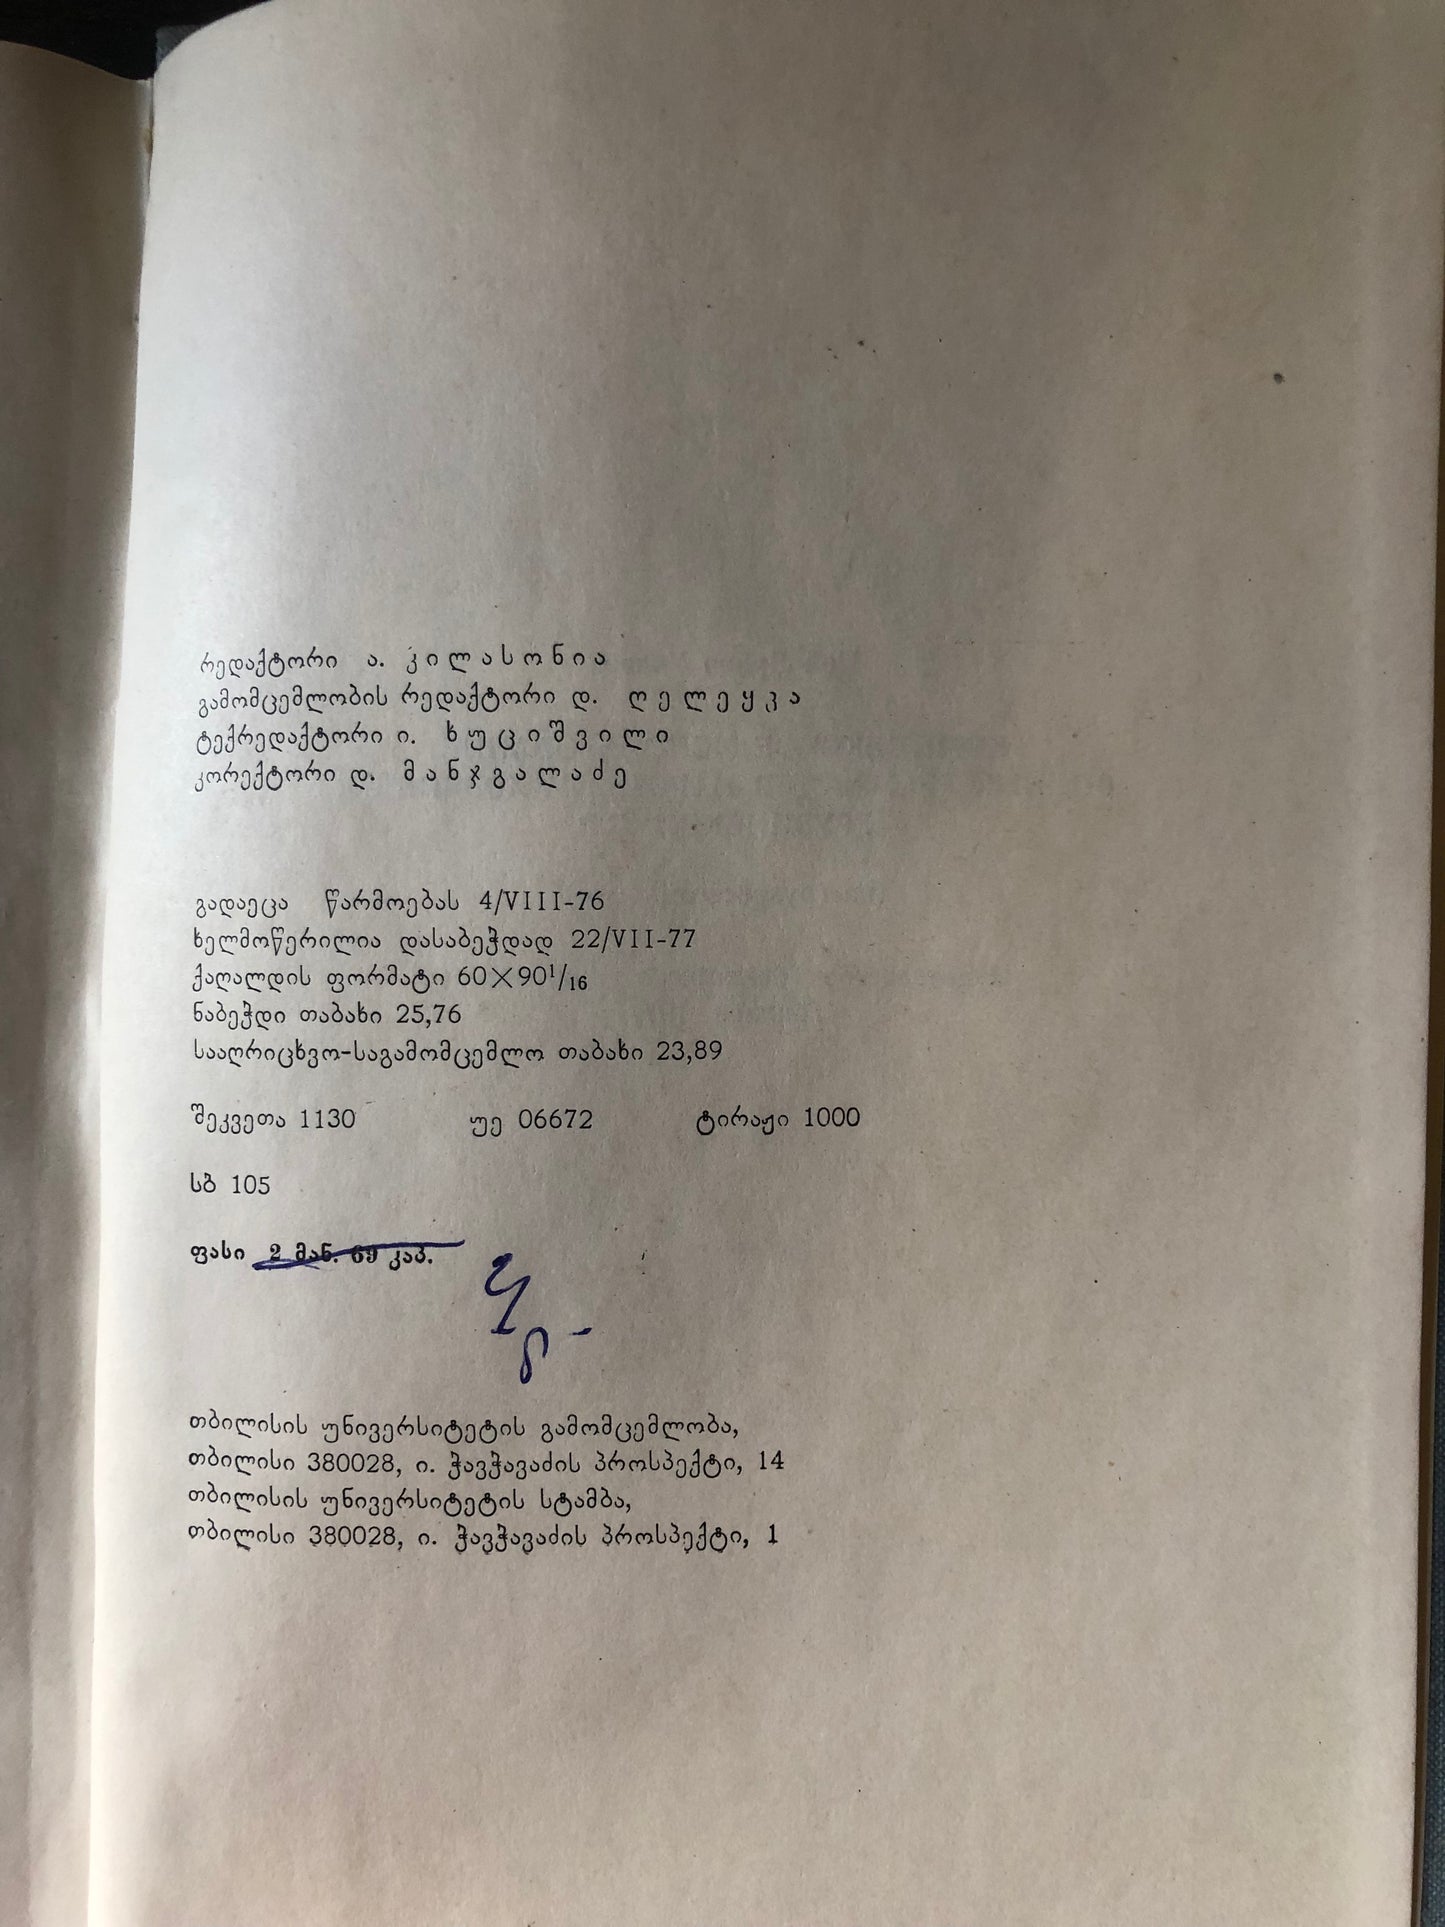 რედაქტორი ა. კილასონია
გამომცემლობის რედაქტორი დ. ღელეყკა
ტექრედაქტორი ი. ხუციშვილი
კორექტორი დ. მანჯგალაძე
გადაეცა წარმოებას 4/VIII-76
ხელმოწერილია დასაბეჭდად 22/VII-77
ქაღალდის ფორმატი 60×90¹/₁₆
ნაბეჭდი თაბახი 25,76
სააღრიცხვო-საგამომცემლო თაბახი 23,89
შეკვეთა 1130 უე 06672 ტირაჟი 1000
სბ 105
ფასი 2 მან. 69 კაპ.
თბილისის უნივერსიტეტის გამომცემლობა,
თბილისი 380028, ი. ჭავჭავაძის პროსპექტი, 14
თბილისის უნივერსიტეტის სტამბა,
თბილისი 380028, ი. ჭავჭავაძის პროსპექტი, 1